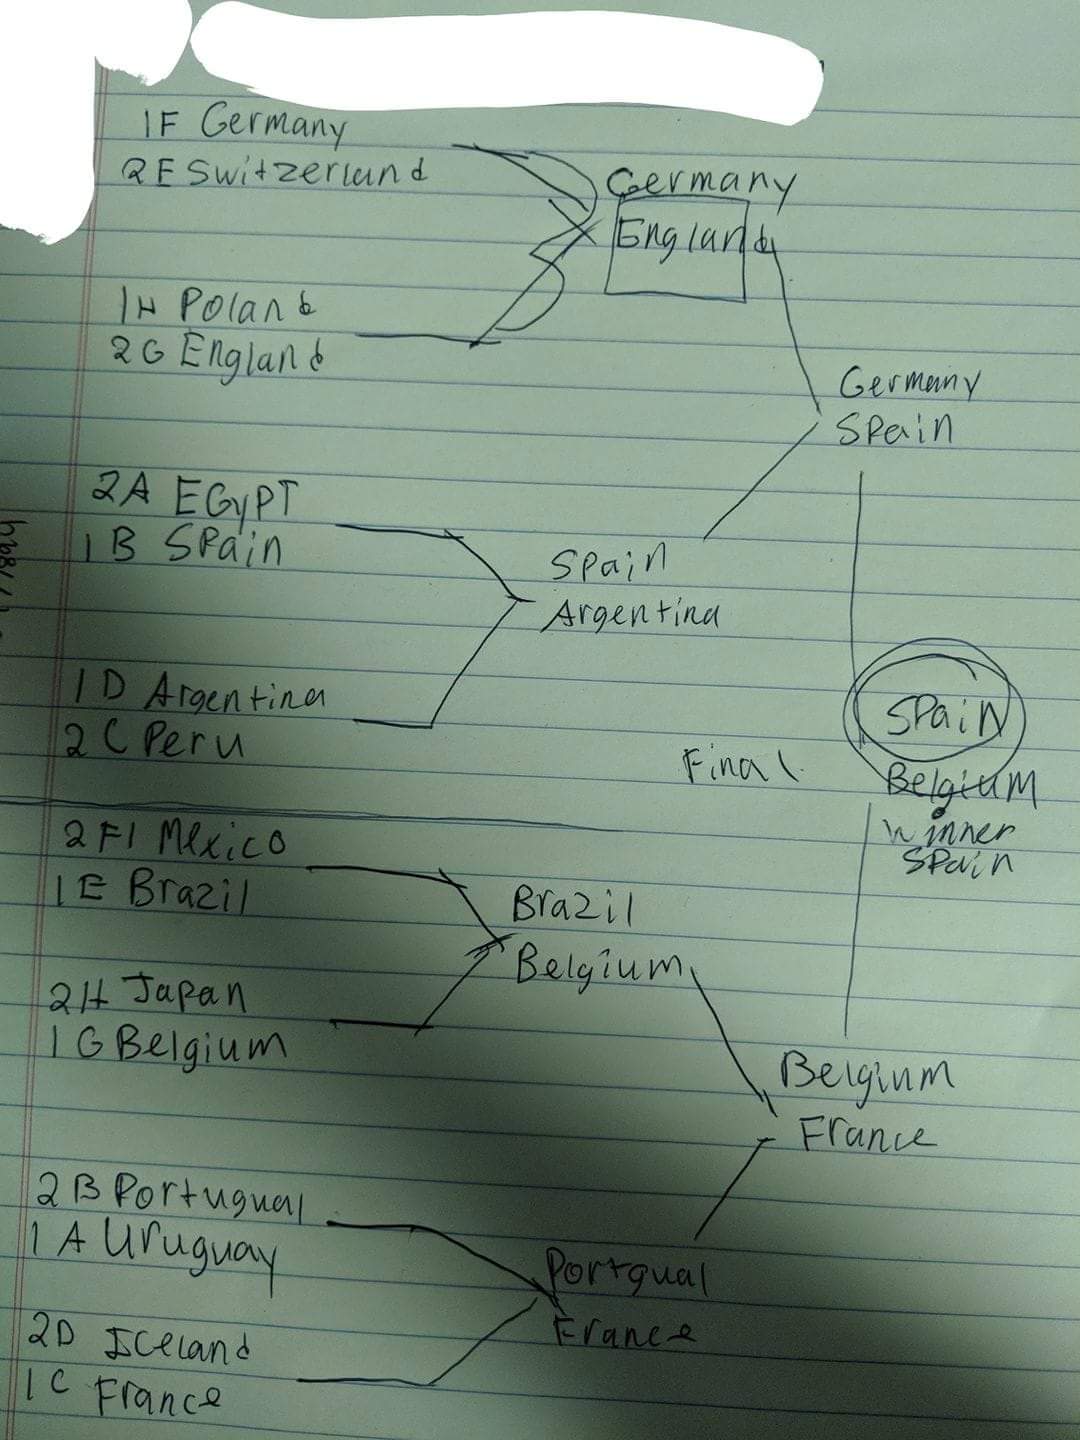 1F Germany
2E Switzerland
Germany
England
1H Poland
2G England
Germany
Spain
2A EGyPT
1B Spain
Spain
Argentina
1D Argentina
2C Peru
Spain
Final
Belgium
winner
Spain
2F1 Mexico
1E Brazil
Brazil
Belgium
2H Japan
1G Belgium
Belgium
France
2B Portugual
1A Uruguay
Portqual
France
2D Iceland
1C France